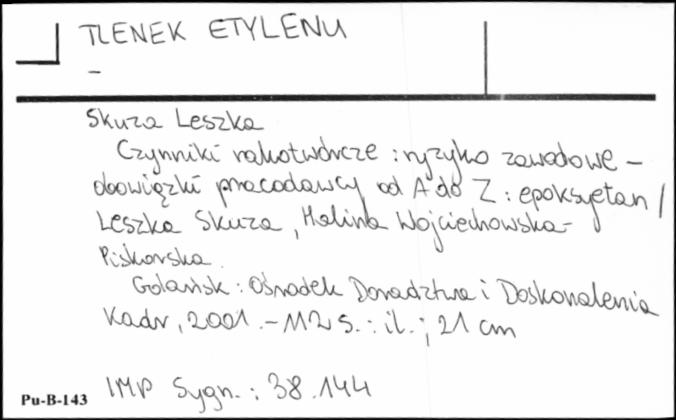 TLENEK ETYLENU
–
Skuza Leszka
Czynniki rakotwórcze : ryzyko zawodowe –
obowiązki pracodawcy od A do Z : epoksyetan /
Leszka Skuza, Halina Wojciechowska-
Piskorska.
Gdańsk : Ośrodek Doradztwa i Doskonalenia
Kadr, 2001. – 112 s. : il. ; 21 cm
Pu-B-143 IMP Sygn. : 38.144